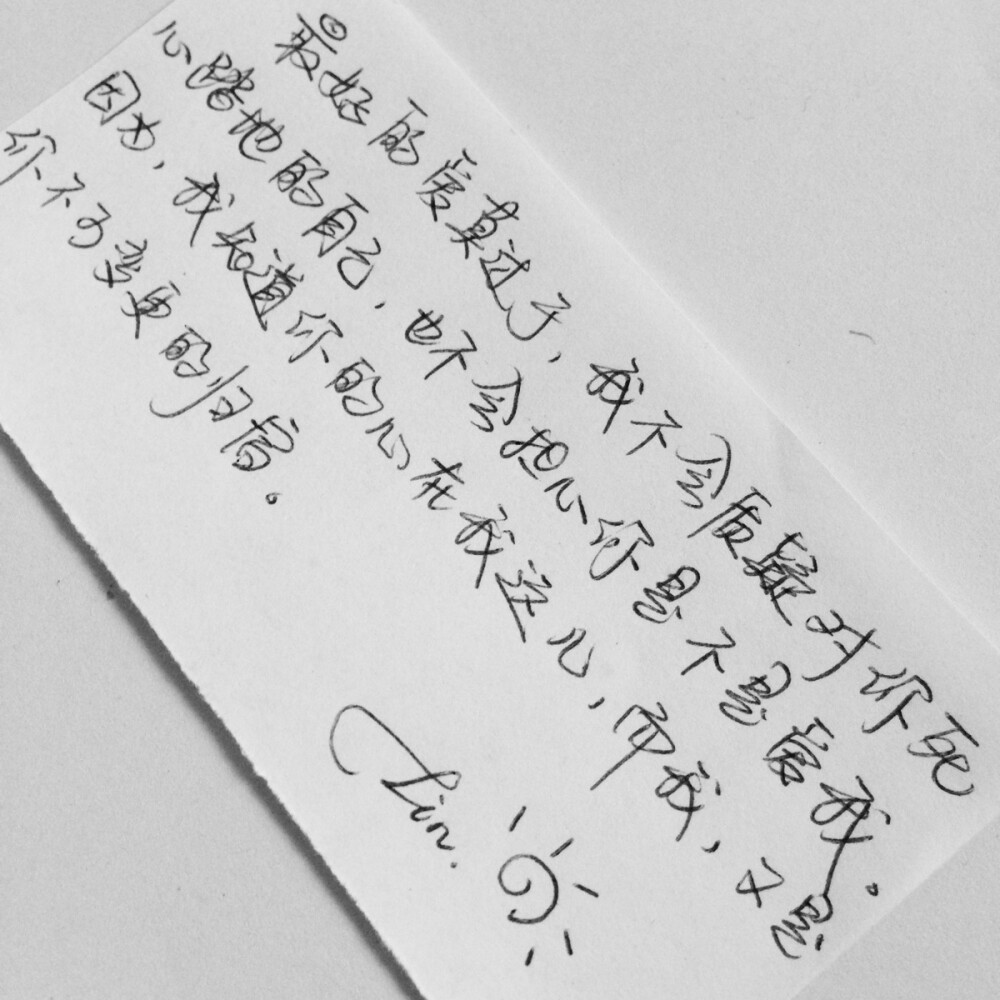 最好的爱莫过于，我不会质疑对你死
心踏地的自己，也不会担心你是不是爱我。
因为，我知道你的心在我这儿，而我，又是
你不可变更的归宿。
Lin.